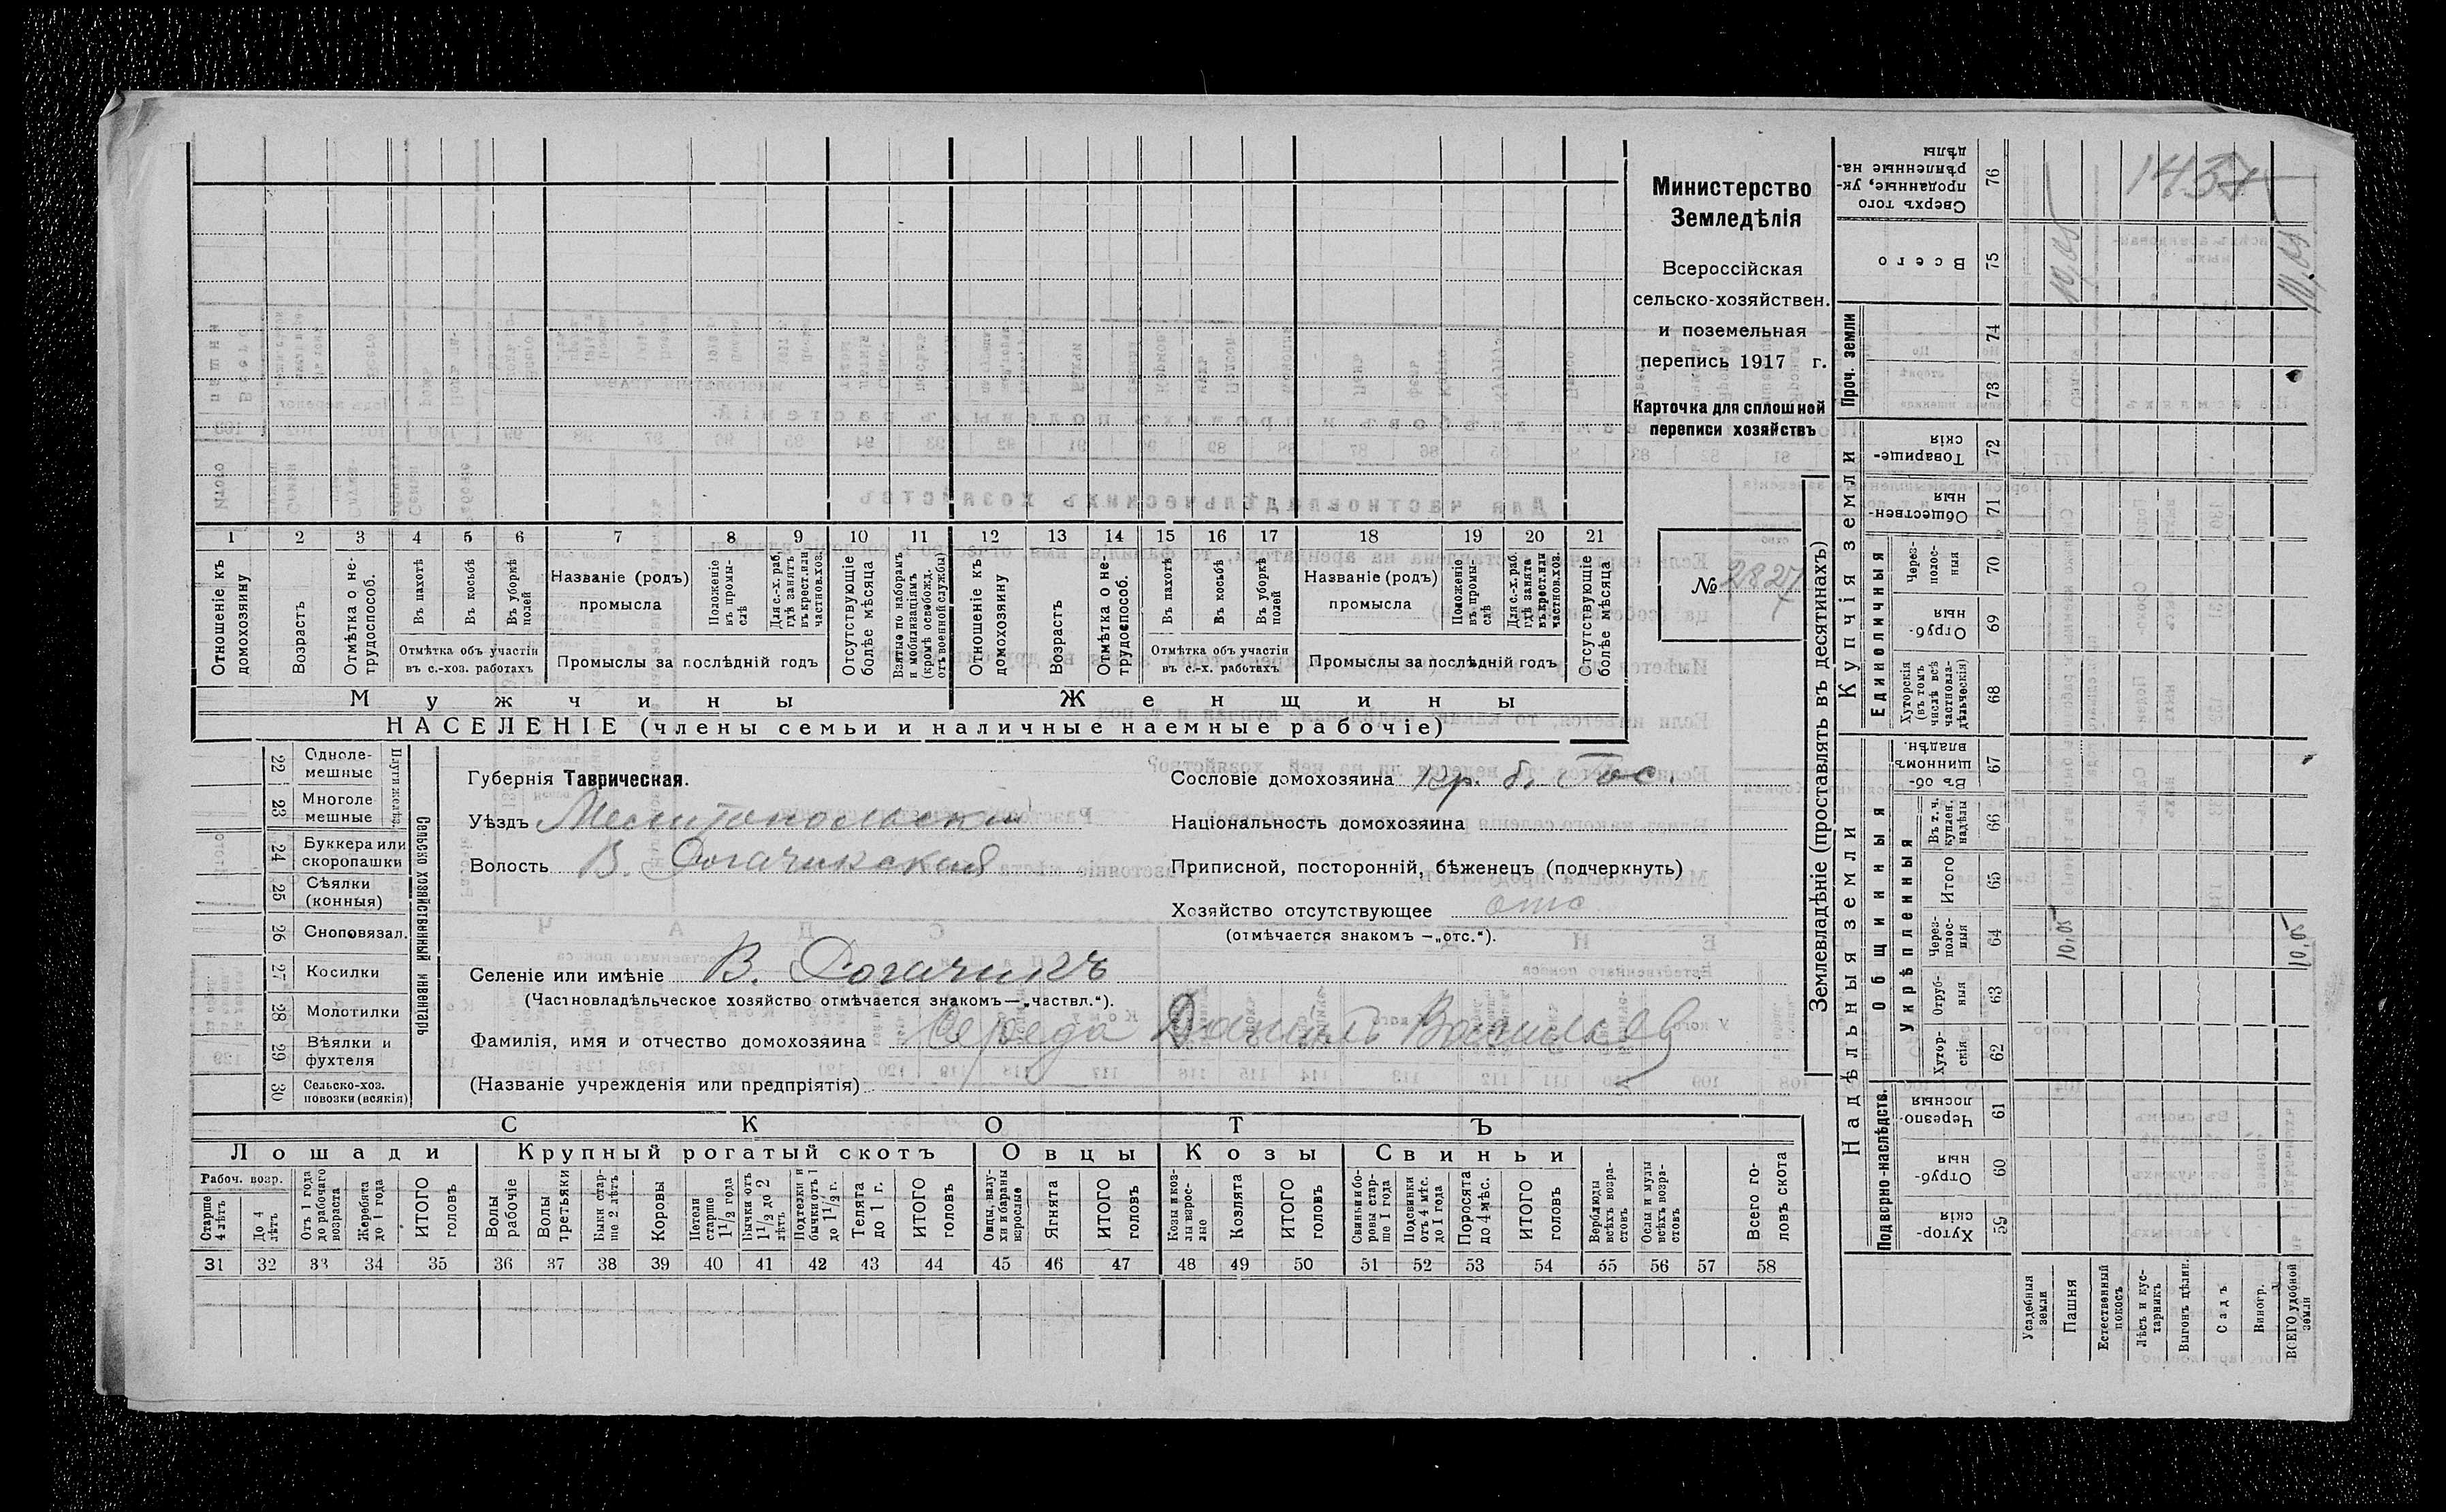 Министерство
Земледѣлія
Всероссійская
сельско-хозяйствен.
и поземельная
перепись 1917 г.
Карточка для сплошной
переписи хозяйствъ
№ 2827
1 2 3 4 5 6 7 8 9 10 11 12 13 14 15 16 17 18 19 20 21
Отношеніе къ домохозяину
Возрастъ
Отмѣтка о не-трудоспособ.
Въ пахотѣ
Въ косьбѣ
Въ уборкѣ полей
Отмѣтка объ участіи
въ с.-хоз. работахъ
Названіе (родъ)
промысла
Положеніе въ промы-слѣ
Для с.-х. раб. гдѣ занятъ въ крест. или частновл. хоз.
Промыслы за послѣдній годъ
Отсутствующіе болѣе мѣсяца
Взятые по наборамъ и мобилизаціямъ (кромѣ освобожд. отъ военной службы)
Отношеніе къ домохозяину
Возрастъ
Отмѣтка о не-трудоспособ.
Въ пахотѣ
Въ косьбѣ
Въ уборкѣ полей
Отмѣтка объ участіи
въ с.-х. работахъ
Названіе (родъ)
промысла
Положеніе въ промы-слѣ
Для с.-х. раб. гдѣ занята въ крест. или частновл. хоз.
Промыслы за послѣдній годъ
Отсутствующіе болѣе мѣсяца
Мужчины
Женщины
НАСЕЛЕНІЕ (члены семьи и наличные наемные рабочіе)
Сельско хозяйственный инвентарь
Плуги желѣз.
22 Одноле-мешные
23 Многоле мешные
24 Буккера или скоропашки
25 Сѣялки (конныя)
26 Сноповязал.
27 Косилки
28 Молотилки
29 Вѣялки и фухтеля
30 Сельско-хоз. повозки (всякія)
Губернія Таврическая.
Уѣздъ Мелитопольскій
Волость В. Рогачикская
Селеніе или имѣніе В. Рогачикъ
(Частновладѣльческое хозяйство отмѣчается знакомъ—„частвл.“).
Фамилія, имя и отчество домохозяина Середа Данiилъ Васильев
(Названіе учрежденія или предпріятія)
Сословіе домохозяина кр. б. Гос.
Національность домохозяина
Приписной, посторонній, бѣженецъ (подчеркнуть)
Хозяйство отсутствующее отс
(отмѣчается знакомъ —„отс.“).
СКОТЪ
Лошади
Крупный рогатый скотъ
Овцы
Козы
Свиньи
Рабоч. возр.
Старше 4 лѣтъ
До 4 лѣтъ
Отъ 1 года до рабочаго возраста
Жеребята до 1 года
ИТОГО головъ
Волы рабочіе
Волы третьяки
Быки стар-ше 2 лѣтъ
Коровы
Нетели старше 1½ года
Бычки отъ 1½ до 2 лѣтъ
Подтелки и бычки отъ 1 до 1½ г.
Телята до 1 г.
ИТОГО головъ
Овцы, валу-хи и бараны взрослые
Ягнята
ИТОГО головъ
Козы и коз-лы взрос-лые
Козлята
ИТОГО головъ
Свиньи и бо-ровы стар-ше 1 года
Подсвинки отъ 4 мѣс. до 1 года
Поросята до 4 мѣс.
ИТОГО головъ
Верблюды всѣхъ возра-стовъ
Ослы и мулы всѣхъ возра-стовъ
Всего го-ловъ скота
31 32 33 34 35 36 37 38 39 40 41 42 43 44 45 46 47 48 49 50 51 52 53 54 55 56 57 58
Землевладѣніе (проставлять въ десятинахъ)
Надѣльныя земли
Купчія земли
Проч. земли
Подворно-наслѣдств.
Общинныя
Укрѣпленныя
Единоличныя
Хутор-скія 59
Отруб-ныя 60
Черезпо-лосныя 61
Хутор-скія 62
Отруб-ныя 63
Через-полос-ныя 64
Итого 65
Въ т. ч. куплен. надѣлы 66
Въ об-щинномъ владѣн. 67
Хуторскія (въ томъ числѣ всѣ частновла-дѣльческія) 68
Отруб-ныя 69
Через-полос-ныя 70
Обществен-ныя 71
Товарище-скія 72
73
74
Всего 75
Сверхъ того проданные, ук-рѣпленные на-дѣлы 76
Усадебныя земли
Пашня
Естественный покосъ
Лѣсъ и кус-тарникъ
Выгонъ цѣлин.
Садъ
Виногр.
ВСЕГО удобной земли
10,05
10,05
10,05